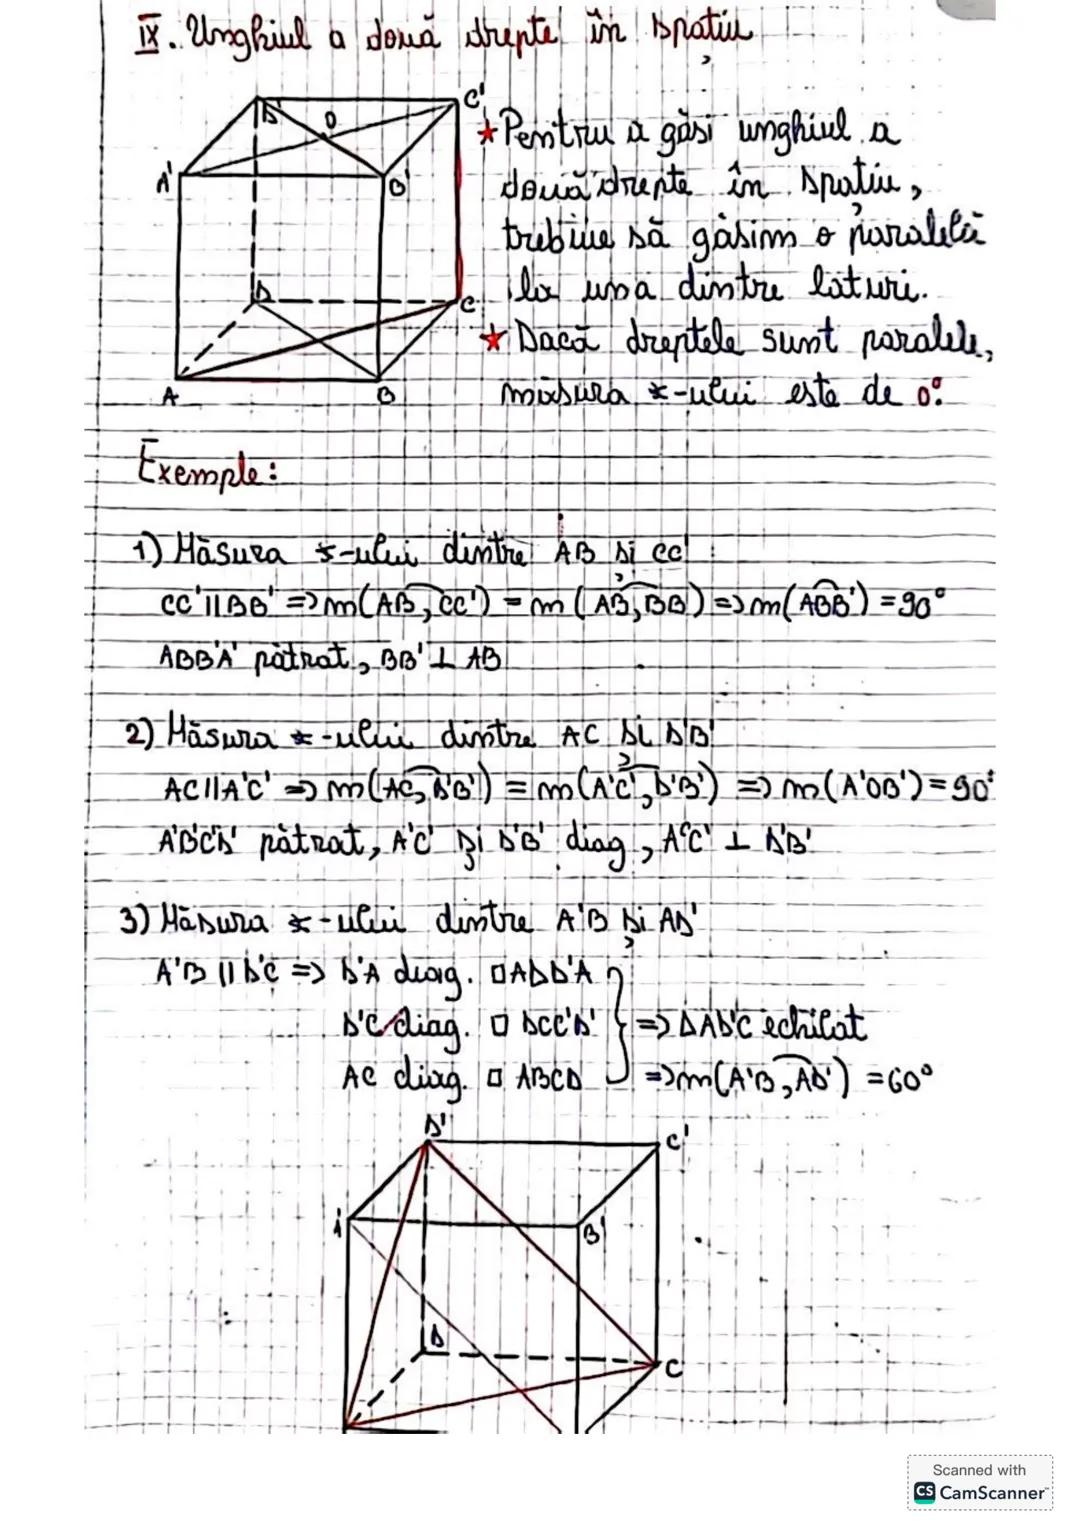 IX. Unghiul a două drepte în spațiu
D'
O
C'
A'
B'
D
C
A
B
★ Pentru a găsi unghiul a
două drepte în spațiu,
trebiue să găsim o paralelă
la una dintre laturi.
★ Dacă dreptele sunt paralele,
măsura ∢-ului este de 0°.
Exemple:
1) Măsura ∢-ului dintre AB și CC'
CC' || BB' => m(AB, CC') = m(AB, BB') => m(ABB') = 90°
ABB'A' pătrat, BB' ⊥ AB
2) Măsura ∢-ului dintre AC și D'B'
AC || A'C' => m(AC, D'B') = m(A'C', D'B') => m(A'OB') = 90°
A'B'C'D' pătrat, A'C' și D'B' diag, A'C' ⊥ D'B'
3) Măsura ∢-ului dintre A'B și AD'
A'B || D'C => D'A diag. □ ADD'A'
D'C diag. □ DCC'D' } => ΔAD'C echilat
AC diag. □ ABCD => m(A'B, AD') = 60°
D'
C'
A'
B'
D
C
Scanned with
CS CamScanner